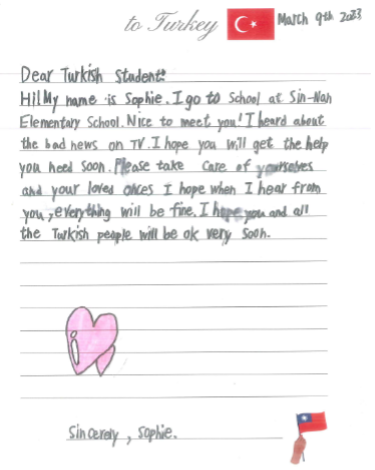 to Turkey
March 9th 2023
Dear Turkish Student:
Hi! My name is Sophie. I go to School at Sin-Nan
Elementary School. Nice to meet you! I heard about
the bad news on TV. I hope you will get the help
you need soon. Please take care of yourselves
and your loved onces I hope when I hear from
you, everything will be fine. I hope you and all
the Turkish people will be ok very soon.
Sincerely, Sophie.